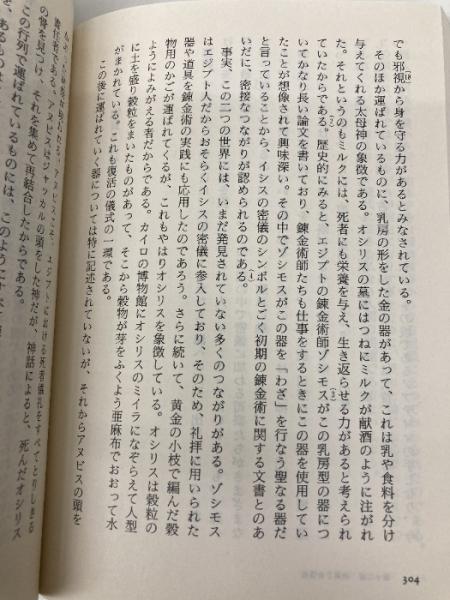 でも邪視から身を守る力があるとみなされている。
(18)
そのほか運ばれているものに、乳房の形をした金の器があって、これは乳や食料を分け
与えてくれる太母神の象徴である。オシリスの墓にはつねにミルクが献酒のように注がれ
た。それというのもミルクには、死者にも栄養を与え、生き返らせる力があると考えられ
ていたからである。歴史的にみると、エジプトの錬金術師ゾシモスがこの乳房型の器につ
いてかなり長い論文を書いており、錬金術師たちも仕事をするときにこの器を使用してい
たことが想像されて興味深い。その中でゾシモスがこの器を「わざ」を行なう聖なる器だ
と言っていることから、イシスの密儀のシンボルとごく初期の錬金術に関する文書とのあ
いだに、密接なつながりが認められるのである。
事実、この二つの世界には、いまだ発見されていない多くのつながりがある。ゾシモス
はエジプト人だからおそらくイシスの密儀に参入しており、そのため、礼拝に用いられた
器や道具を錬金術の実践にも応用したのであろう。さらに続いて、黄金の小枝で編んだ穀
物用のかごが運ばれてくるが、これもやはりオシリスを象徴している。オシリスは穀粒の
ようによみがえる者だからである。カイロの博物館にオシリスのミイラになぞらえて人型
に土を盛り穀粒をまいたものがあって、そこから穀物が芽をふくよう亜麻布でおおって水
がまかれている。これも復活の儀式の一環である。
この後に運ばれていく器については特に記述されていないが、それからアヌビスの頭を
責任者である。アヌビスはジャッカルの頭をした神だが、神話によると、死んだオシリス
の骨を見つけ、それを集めて再結合したからである。
この行列で運ばれているものには、このように
304